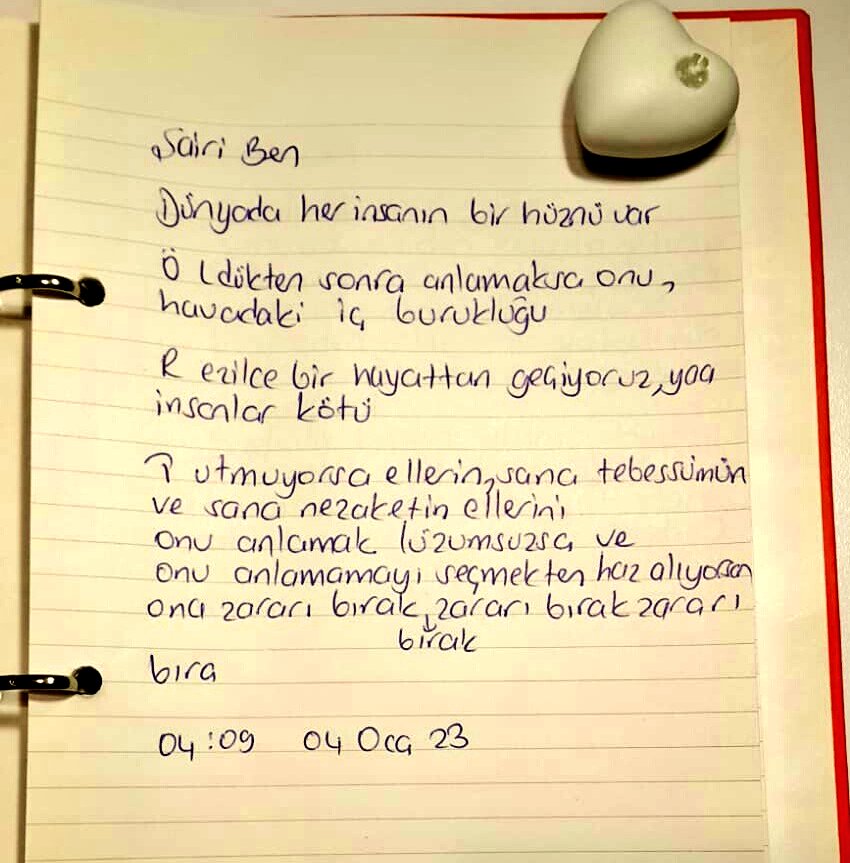 Şairi Ben
Dünyada her insanın bir hüznü var
Ö ldükten sonra anlamaksa onu,
havadaki iç burukluğu
R ezilce bir hayattan geçiyoruz, yaa
insanlar kötü
T utmuyorsa ellerin, sana tebessümün
ve sana nezaketin ellerini
onu anlamak lüzumsuzsa ve
onu anlamamayı seçmekten haz alıyorsan
ona zararı bırak, zararı bırak zararı
bırak
bıra
04:09 04 Oca 23